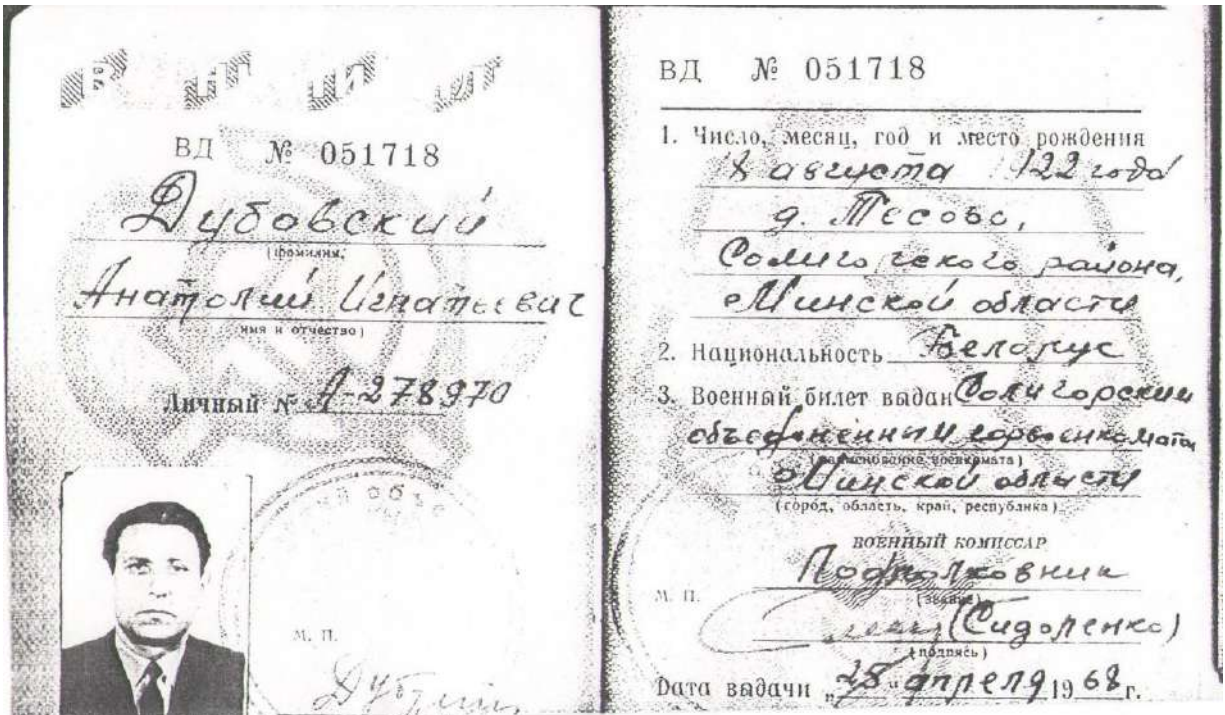 ВД № 051718
Дубовский
(фамилия,
Анатолий Игнатьевич
имя и отчество)
Личный № А-278970
М. П.
ВД № 051718
1. Число, месяц, год и место рождения
8 августа 1922 года
д. Тесово,
Солигорского района,
Минской области
2. Национальность Белорус
3. Военный билет выдан Солигорским
объединенным горвоенкоматом
(наименование военкомата)
Минской области
(город, область, край, республика)
ВОЕННЫЙ КОМИССАР
Подполковник
М. П.
(звание)
(Сидоленко)
(подпись)
Дата выдачи „28“ апреля 1968 г.